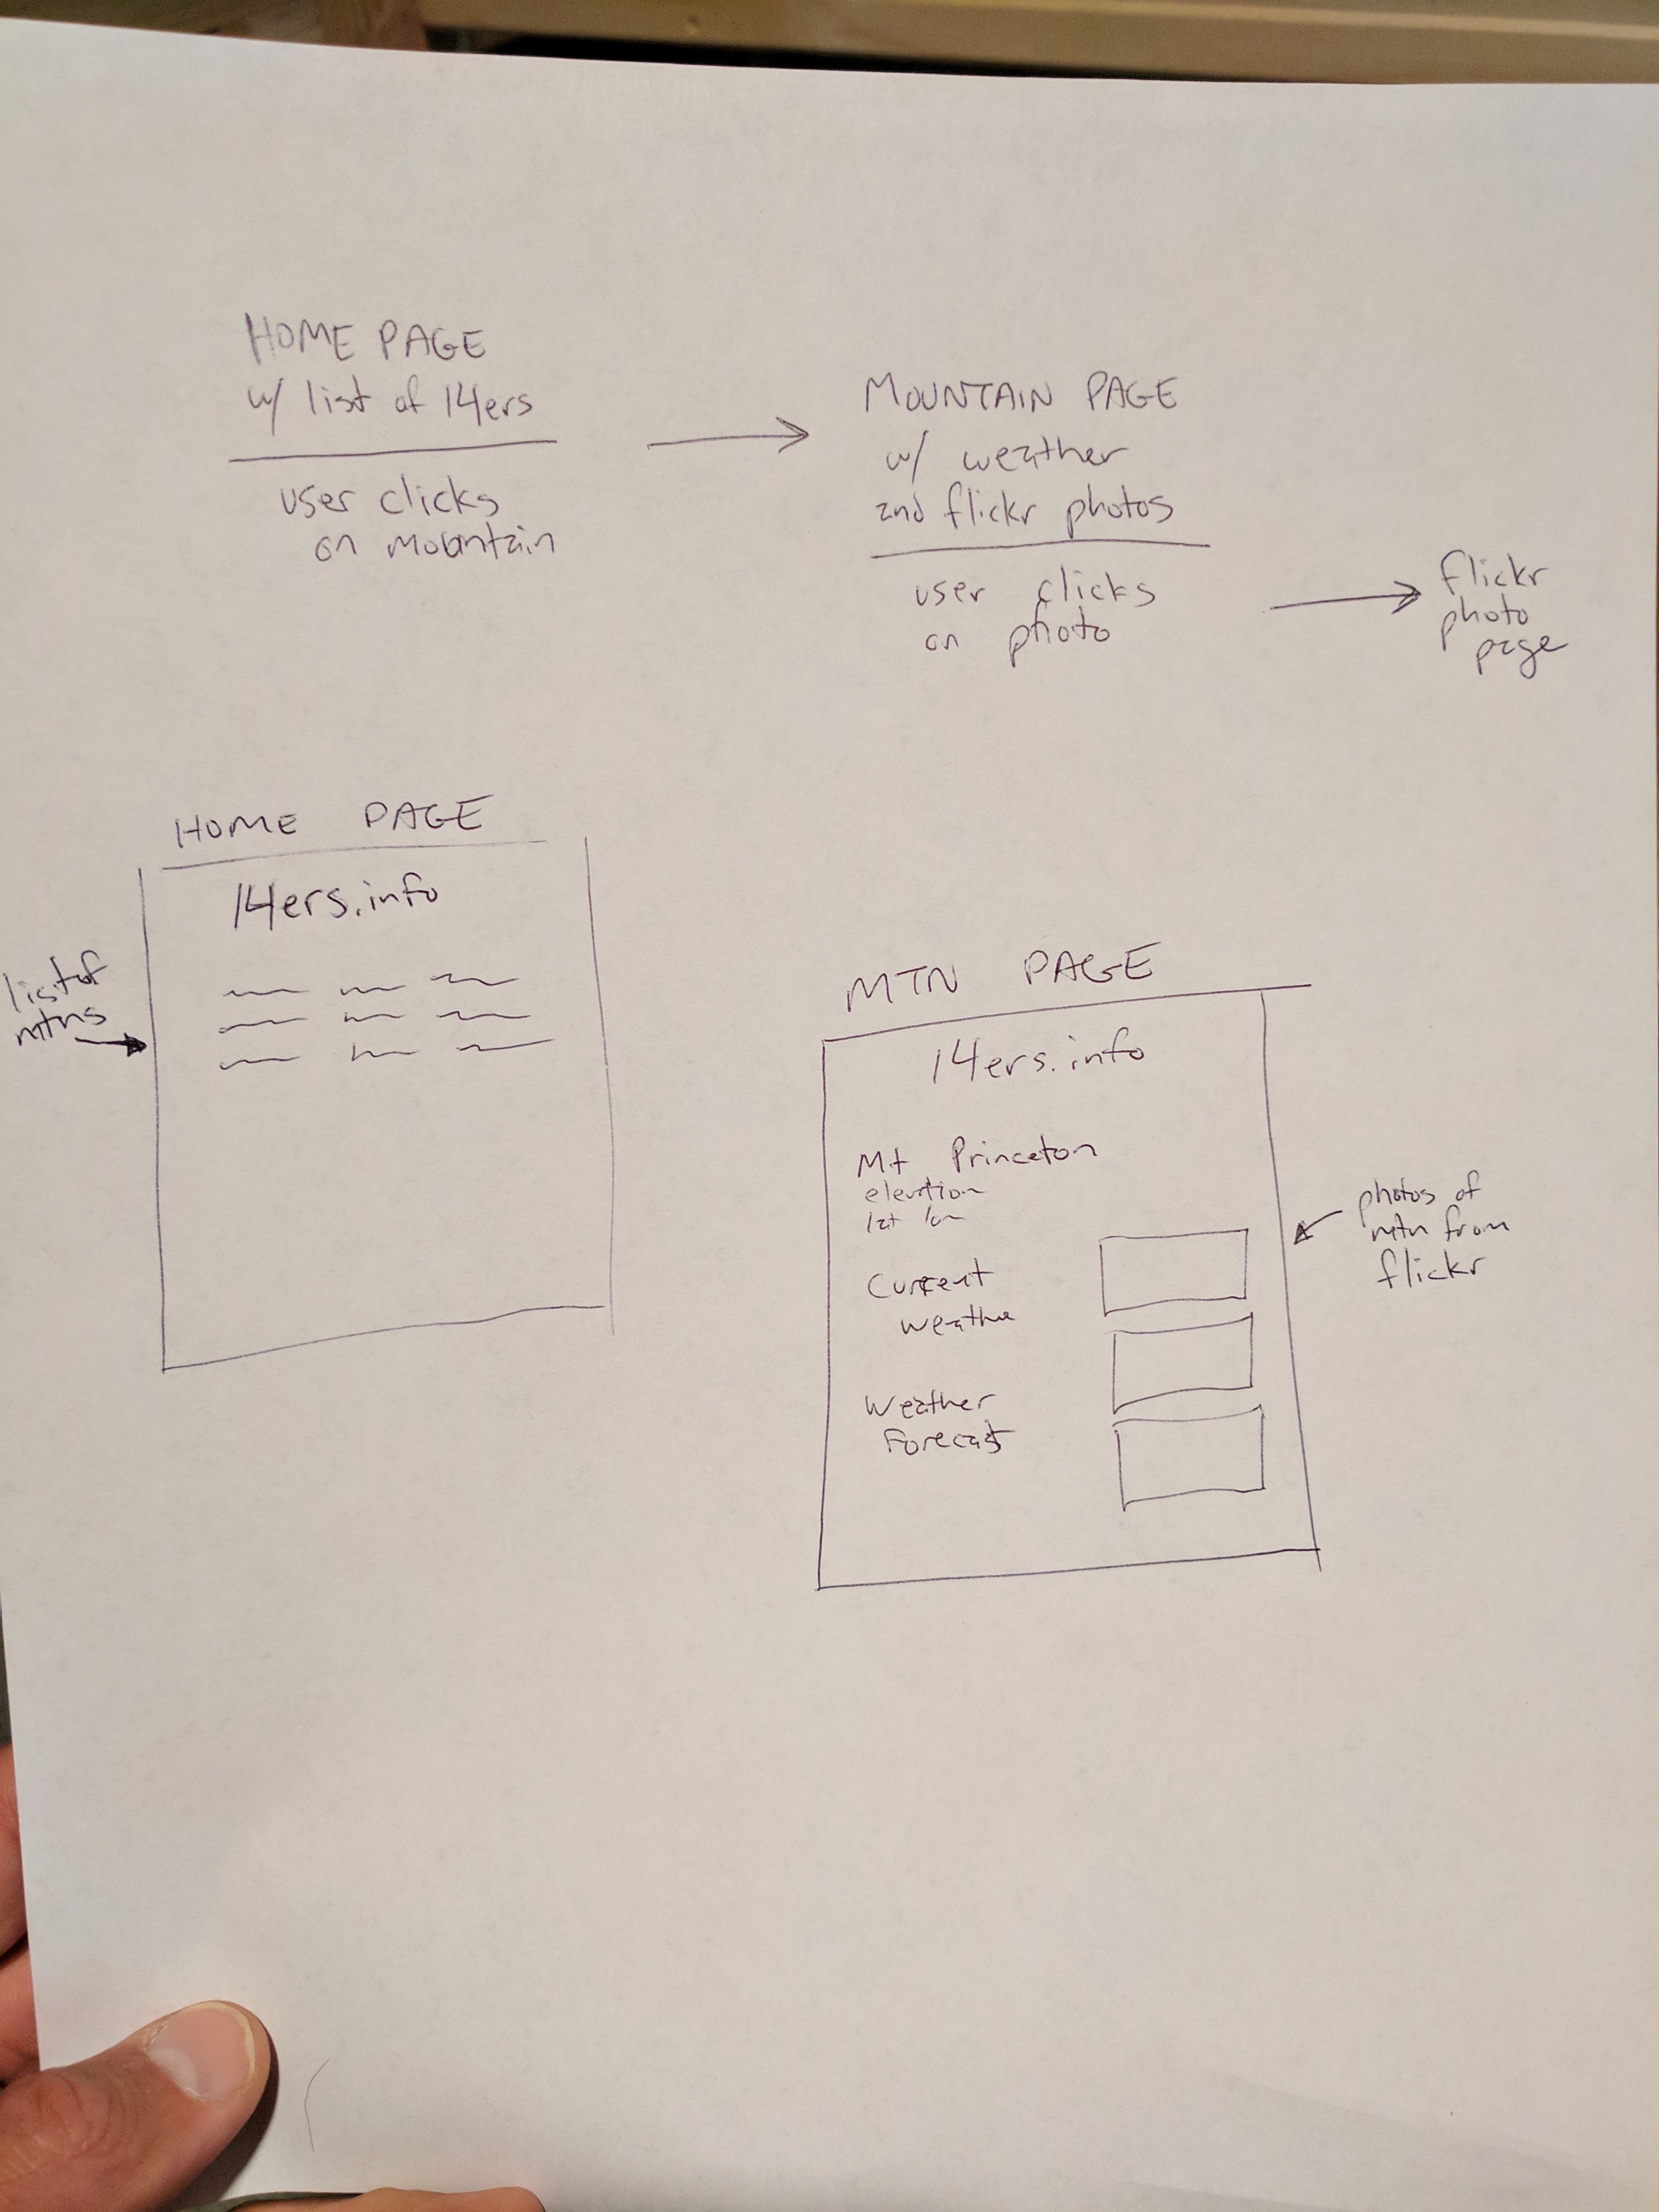 HOME PAGE
w/ list of 14ers
user clicks
on mountain
MOUNTAIN PAGE
w/ weather
and flickr photos
user clicks
on photo
flickr
photo
page
HOME PAGE
14ers.info
list of
mtns
MTN PAGE
14ers.info
Mt Princeton
elevation
lat lon
Current
weather
Weather
Forecast
photos of
mtn from
flickr